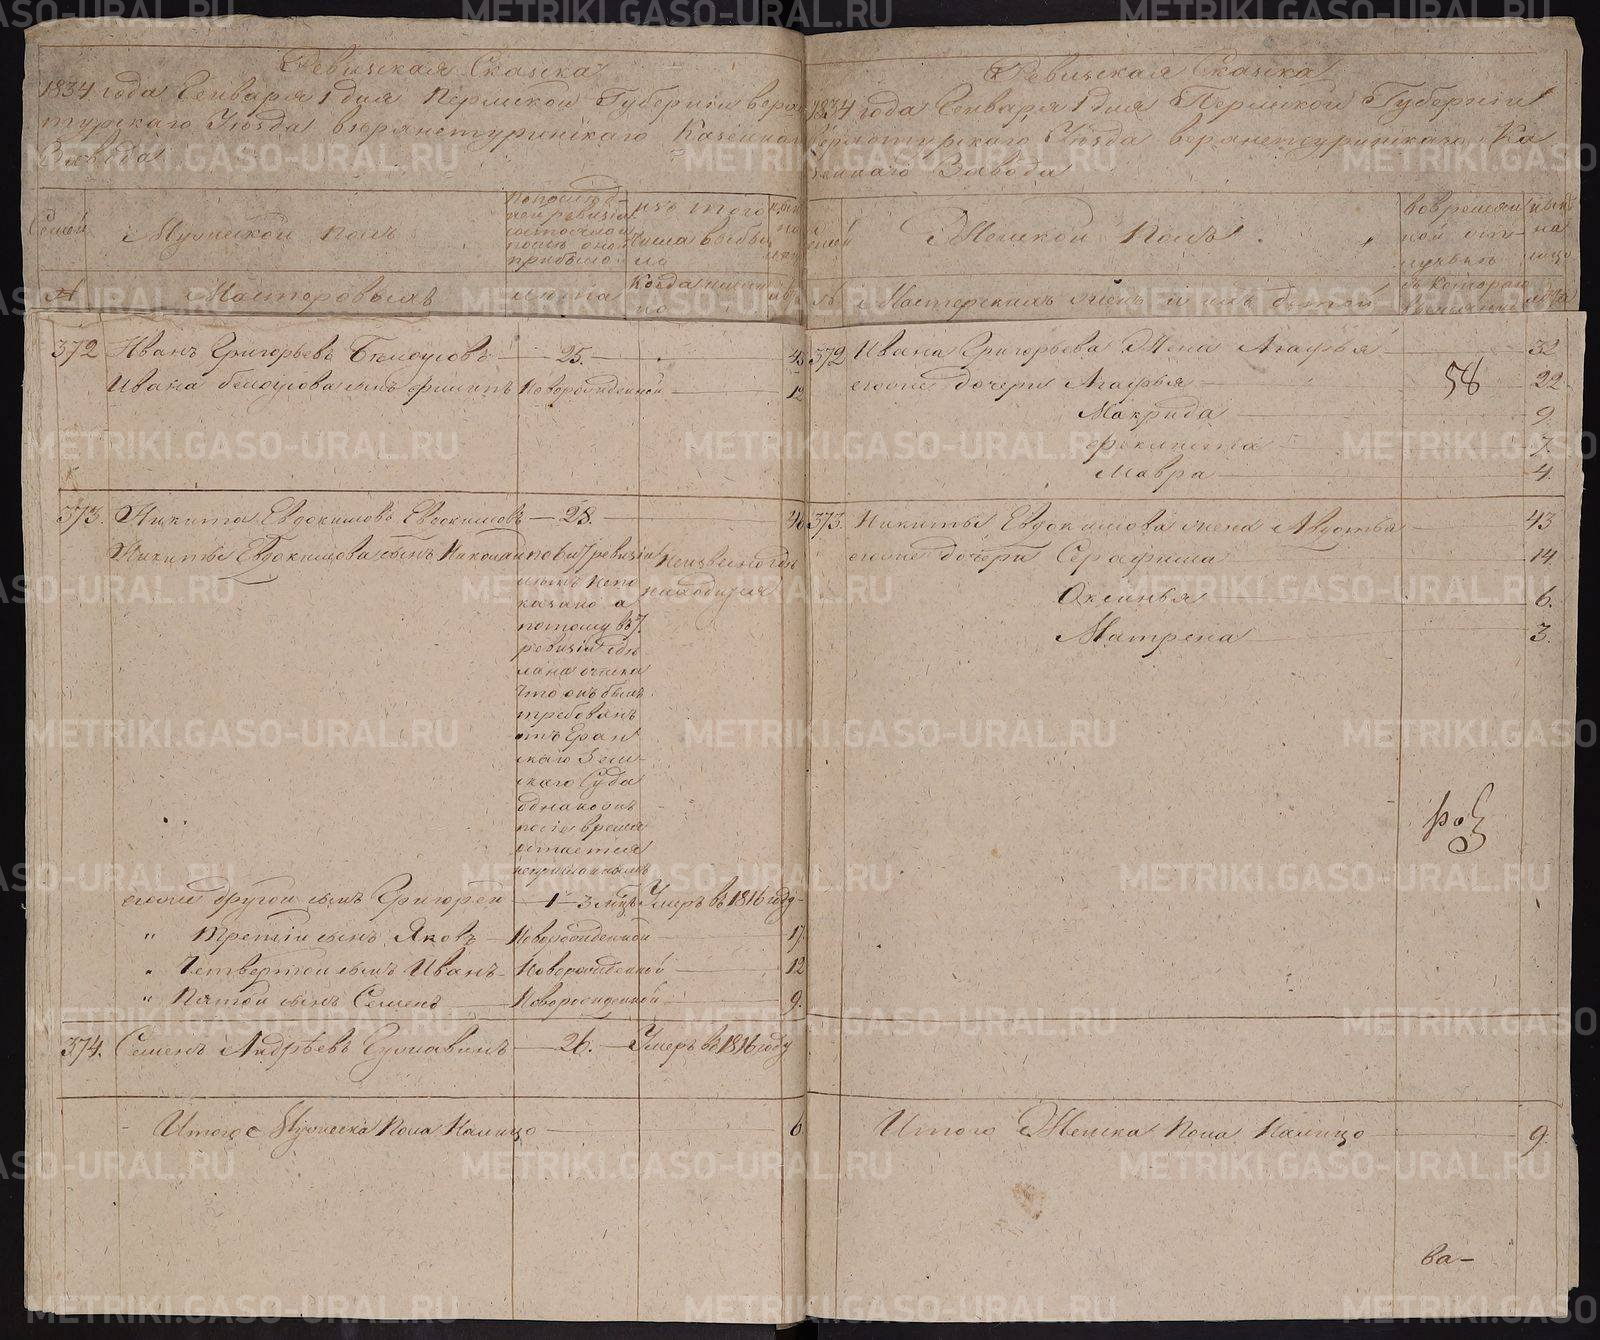 Ревижская Сказка
1834 года Генваря 1 дня Пермской Губернии верхо
турскаго Уезда верхнетуринскаго Казеннаго
Завода
Семей
Мужеской полъ
По последней ревизии состояло и после оной прибыло
изъ того числа выбыло
№
Мастеровыхъ
лета
Когда имянно
372 Иванъ Григорьевъ Белоусовъ — 25. —
Ивана Белоусова сынъ Филипъ Новорожденной — 12
373. Никита Евдокимовъ Евдокимовъ — 28. —
Никиты Евдокимова сынъ Николай по 6 и 7 ревизии
летъ непо
казано а
потому въ 7.
ревизии сде
лана очиска
что онъ былъ
требованъ
отъ Еран
скаго Зем-
скаго Суда
однакожъ
после время
остается
Неизвесно где
находится
егоже другой сынъ Григорей — 1 — 3 м Умеръ в 1816 году
" Третий сынъ Яковъ — Новорожденной — 17.
" Четвертой сынъ Иванъ — Новорожденной — 12
" Пятой сынъ Семенъ — Новорожденной — 9.
374. Семенъ Андреевъ — 26. — Умеръ в 1816 году
Итого Мужеска Пола Налицо — 6
Ревижская Сказка
1834 года Генваря 1 дня Пермской Губернии
Верхотурскаго Уезда верхнетуринскаго Ка
зеннаго Завода
Женской Полъ.
№
Мастерскихъ женъ и ихъ детей
лета
372 Ивана Григорьева Жена Агафья — 32
егоже дочери Агафья — 22
58
Макрида — 9.
Феклиста — 7.
Мавра — 4.
373. Никиты Евдокимова жена Авдотья — 43
егоже дочери Серафима — 14.
Оксинья — 6.
Матрена — 3.
Итого Женска Пола Налицо — 9.
ва-
METRIKI.GASO-URAL.RU